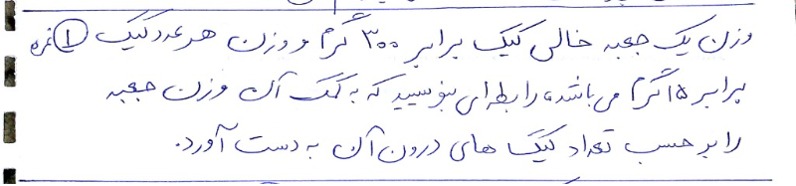 وزن یک جعبه خالی کیک برابر ۳۰۰ گرم و وزن هر عدد کیک ۱ نمره
برابر ۱۵ گرم می باشد، رابطه ای بنویسید که به کمک آن وزن جعبه
را بر حسب تعداد کیک های درون آن به دست آورد.